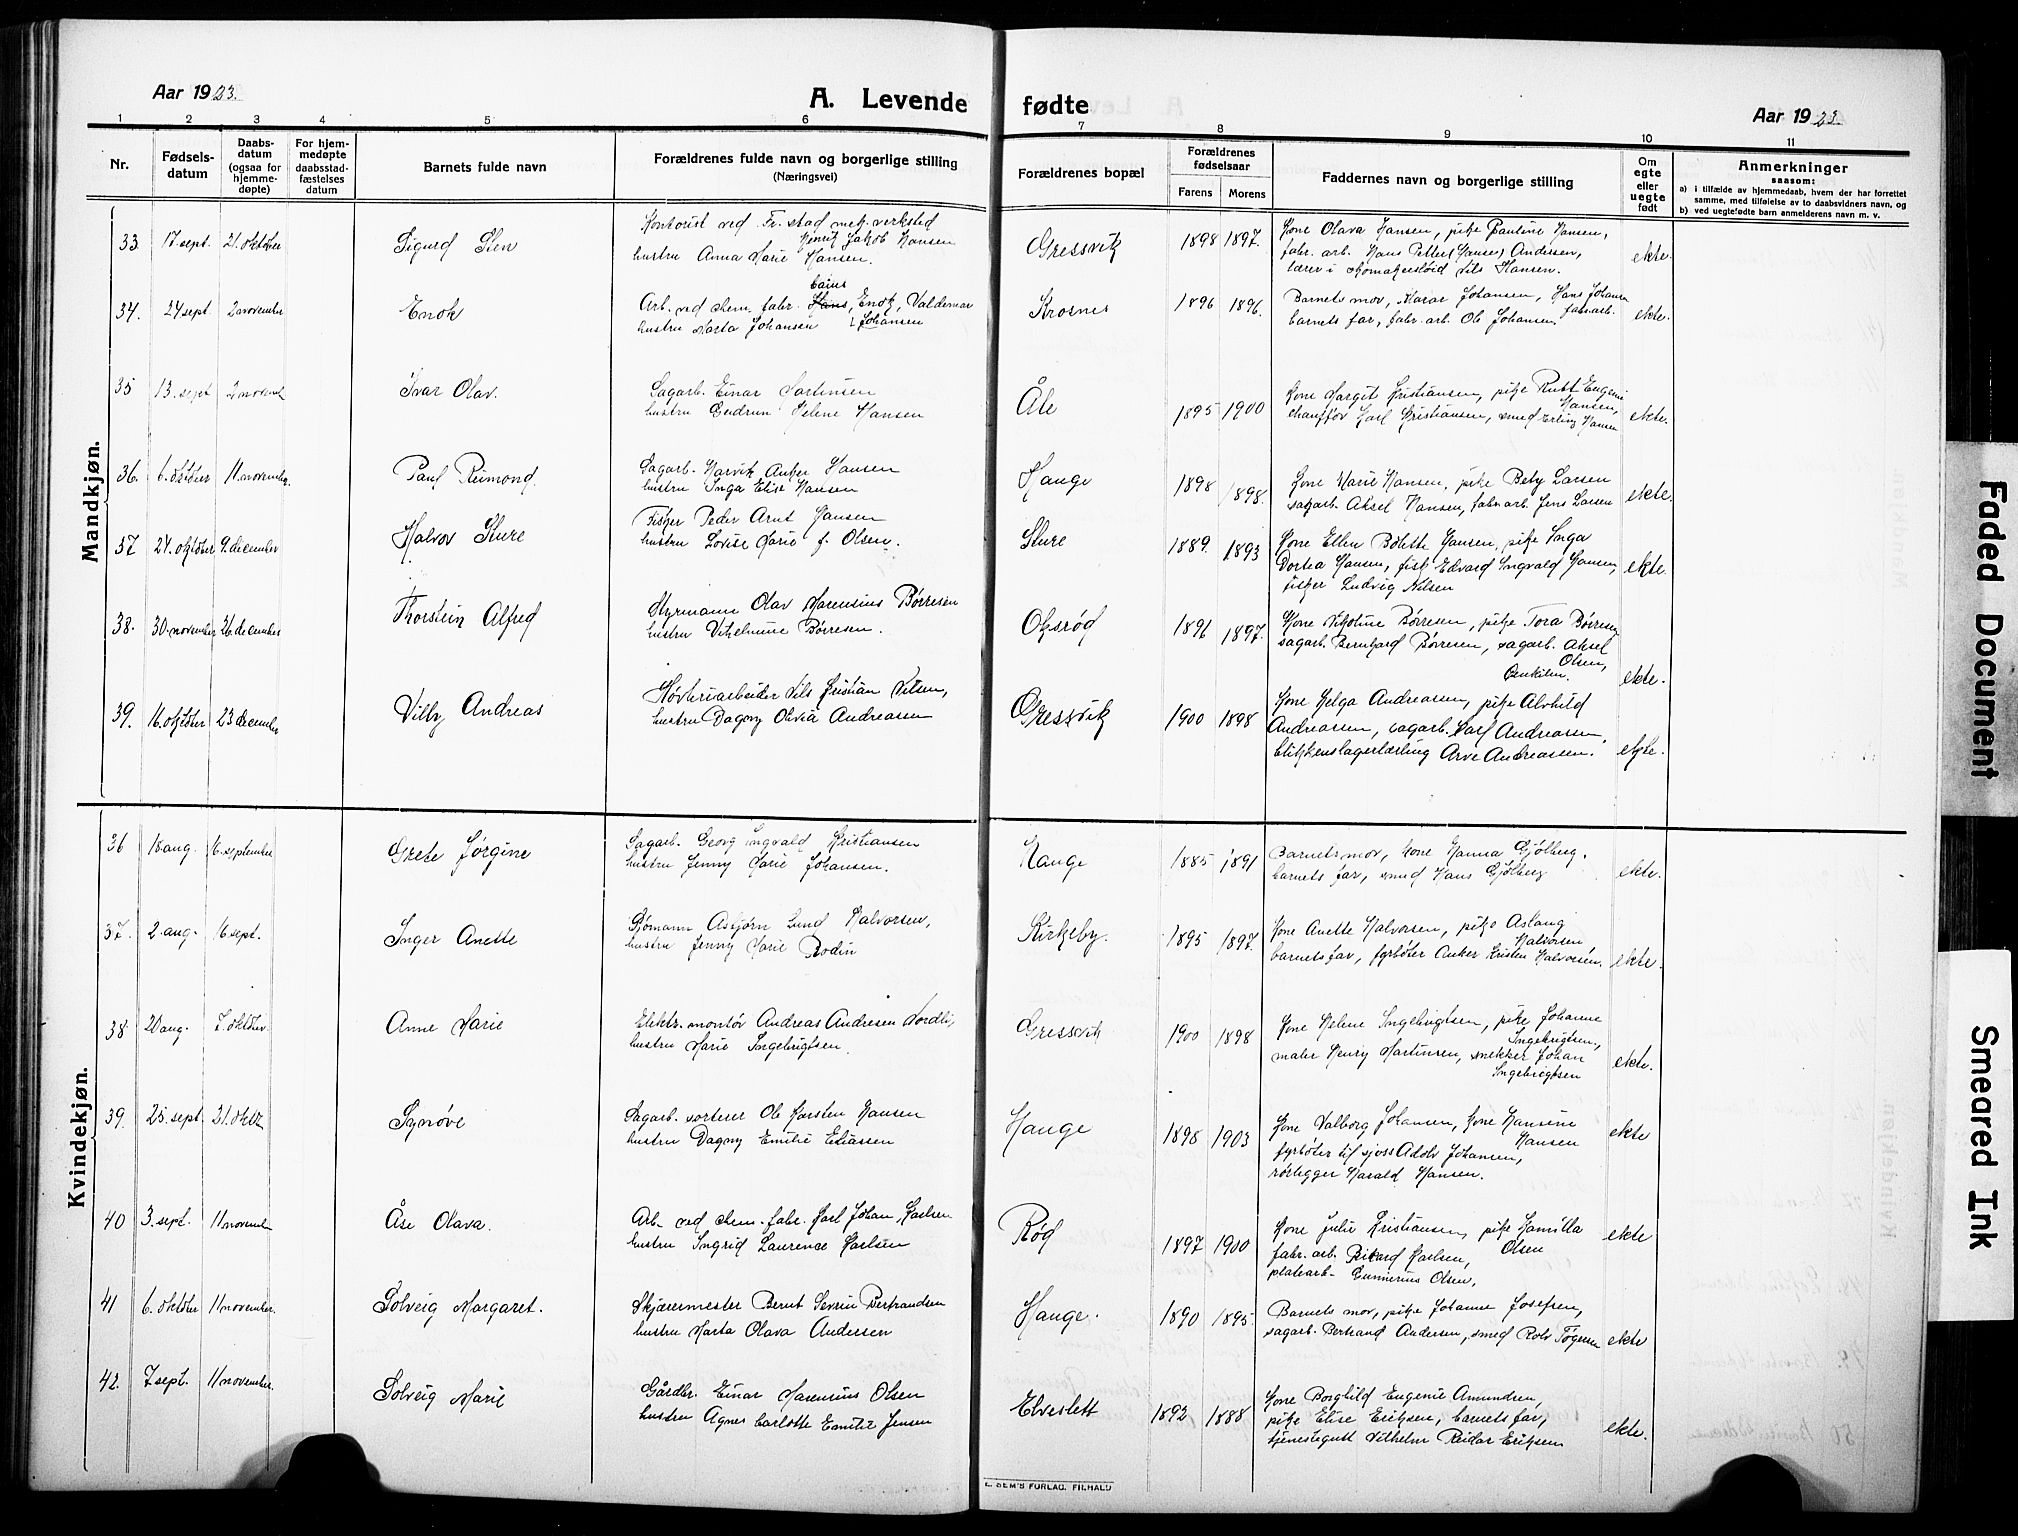 Aar 1923.
A. Levende fødte
Aar 1923.
1 2 3 4 5 6 7 8 9 10 11
Nr.
Fødsels-
datum
Daabs-
datum
(ogsaa for
hjemme-
døpte)
For hjem-
medøpte
daabsstad-
fæstelses
datum
Barnets fulde navn
Forældrenes fulde navn og borgerlige stilling
(Næringsvei)
Forældrenes bopæl
Forældrenes
fødselsaar
Farens Morens
Faddernes navn og borgerlige stilling
Om
egte
eller
uegte
født
Anmerkninger
saasom:
a) i tilfælde av hjemmedaab, hvem der har forrettet
samme, med tilføielse av to daabsvidners navn, og
b) ved uegtefødte barn anmelderens navn m. v.
Mandkjøn.
33. 17. sept. 21. oktober Sigurd Sten
Kontorist ved Fr.stad mek. verksted
Henrik Jakob Hansen
hustru Anna Marie Hansen.
Gressvik 1898 1897.
Kone Olava Hansen, pike Pauline Hansen,
fabr. arb. Hans Petter (Hansen) Andersen,
lærer i Nils Hansen.
ekte.
34. 24 sept. 2 november Enok
Arb. ved chem. fabr. Hans, Enok, Valdemar
hustru Marta Johansen Johansen
Krosnes 1896 1896.
Barnets mor, Johansen, Hans Johansen
barnets far, fabr. arb. Ole Johansen. fabr.arb.
ekte.
35 13. sept 2 novemb Ivar Olav.
Sagarb. Einar Martinsen
hustru Gudrun Helene Hansen
Åle 1895 1900
Kone Margit Kristiansen, pike Rutt Eugenie
Hansen,
chauffør Karl Kristiansen, smed Erling Hansen
ekte.
36. 6. oktober 11 november. Paul Reimond.
Sagarb. Narvik Anker Hansen
hustru Inga Elise Hansen
Hauge 1898 1898.
Kone Marie Hansen, pike Bety Larsen
sagarb. Aksel Hansen, fabr. arb. Jens Larsen
ekte.
37 24. oktober 9. december Halvor Sture
Fisker Peder Arnt Hansen
hustru Lovise Marie f. Olsen.
Slure 1889. 1893
Kone Ellen Bolette Hansen, pike Inga
Dortea Hansen, fisk. Edvard Ingvald Hansen,
fisker Ludvig Nilsen
ekte.
38. 30. november 26 december Thorstein Alfred
Styrmann Olav Marensius Børresen
hustru Vilhelmine Børresen.
Oksrød 1896 1897.
Kone Nikoline Børresen, pike Tora Børresen,
sagarb. Bernhard Børresen, sagarb. Aksel
Olsen,
Enkilen.
ekte.
39. 16. oktober 23 december Villy Andreas
Høvleriarbeider Nils Kristian Nilsen,
hustru Dagny Olivia Andreasen
Gressvik 1900 1898
Kone Helga Andreasen, pike Alvhild
Andreasen, sagarb. Karl Andreasen,
blikkenslagerlærling Arve Andreassen.
ekte.
Kvindekjøn.
36 18 aug. 16. september Grete Jørgine
Sagarb. Georg Ingvald Kristiansen
hustru Jenny Marie Johansen.
Hauge 1885 1891
Barnets mor, kone Hanna Gjølberg.
barnets far, smed Hans Gjølberg
ekte.
37. 2 aug. 16 sept. Inger Anette
Sjømann Asbjørn Lund Halvorsen,
hustru Jenny Marie Rodin
Kirkeby. 1895 1897.
Kone Anette Halvorsen, pike Aslaug
Halvorsen,
barnets far, fyrbøter Anker Kristen Halvorsen,
ekte.
38 20 aug. 7. oktober Anne Marie
Elektr. montør Andreas Andresen Nordli,
hustru Marie Ingebrigtsen.
Gressvik 1900 1898
Kone Helene Ingebrigtsen, pike Johanne
Ingebrigtsen,
maler Henry Martinsen, snekker Johan
Ingebrigtsen
ekte.
39. 25. sept. 21. oktbr Synøve
Sagarb. sorterer Ole Karsten Hansen
hustru Dagny Emilie Eliassen
Hauge 1898 1903
Kone Valborg Johansen, Kone Hansine
Hansen
fyrbøter til sjøss Adolv Johansen,
rørlegger Harald Hansen.
ekte
40 3. sept. 11 november Åse Olava.
Arb. ved chem. fabr. Karl Johan Karlsen
hustru Ingrid Laurence Karlsen
Rød 1897 1900
Kone Julie Kristiansen, pike Kamilla
Olsen
fabr. arb. Rikard Karlsen,
platearb. Gunnerius Olsen,
ekte
41 6. oktober 11 november. Solveig Margaret.
Skjæremester Bernt Severin Bertrandsen
hustru Marta Olava Andersen
Hauge. 1890 1895.
Barnets mor, pike Johanne Josefsen,
sagarb. Bertrand Andersen, smed Rolv
ekte
42. 7 sept. 11 november. Solveig Marie
Gårdbr. Einar Marensius Olsen
hustru Agnes Carlotte Emilie Jensen
Elveslett 1892 1888
Kone Borghild Eugenie Amundsen,
pike Elise Eriksen, barnets far,
tjenestegutt Vilhelm Reidar Eriksen
ekte.
SEM'S FORLAG. FR.HALD
Faded Document
Smeared Ink